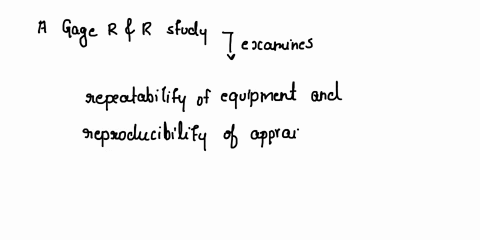 A Gage R & R study
examines
repeatability of equipment and
reproducibility of apprai